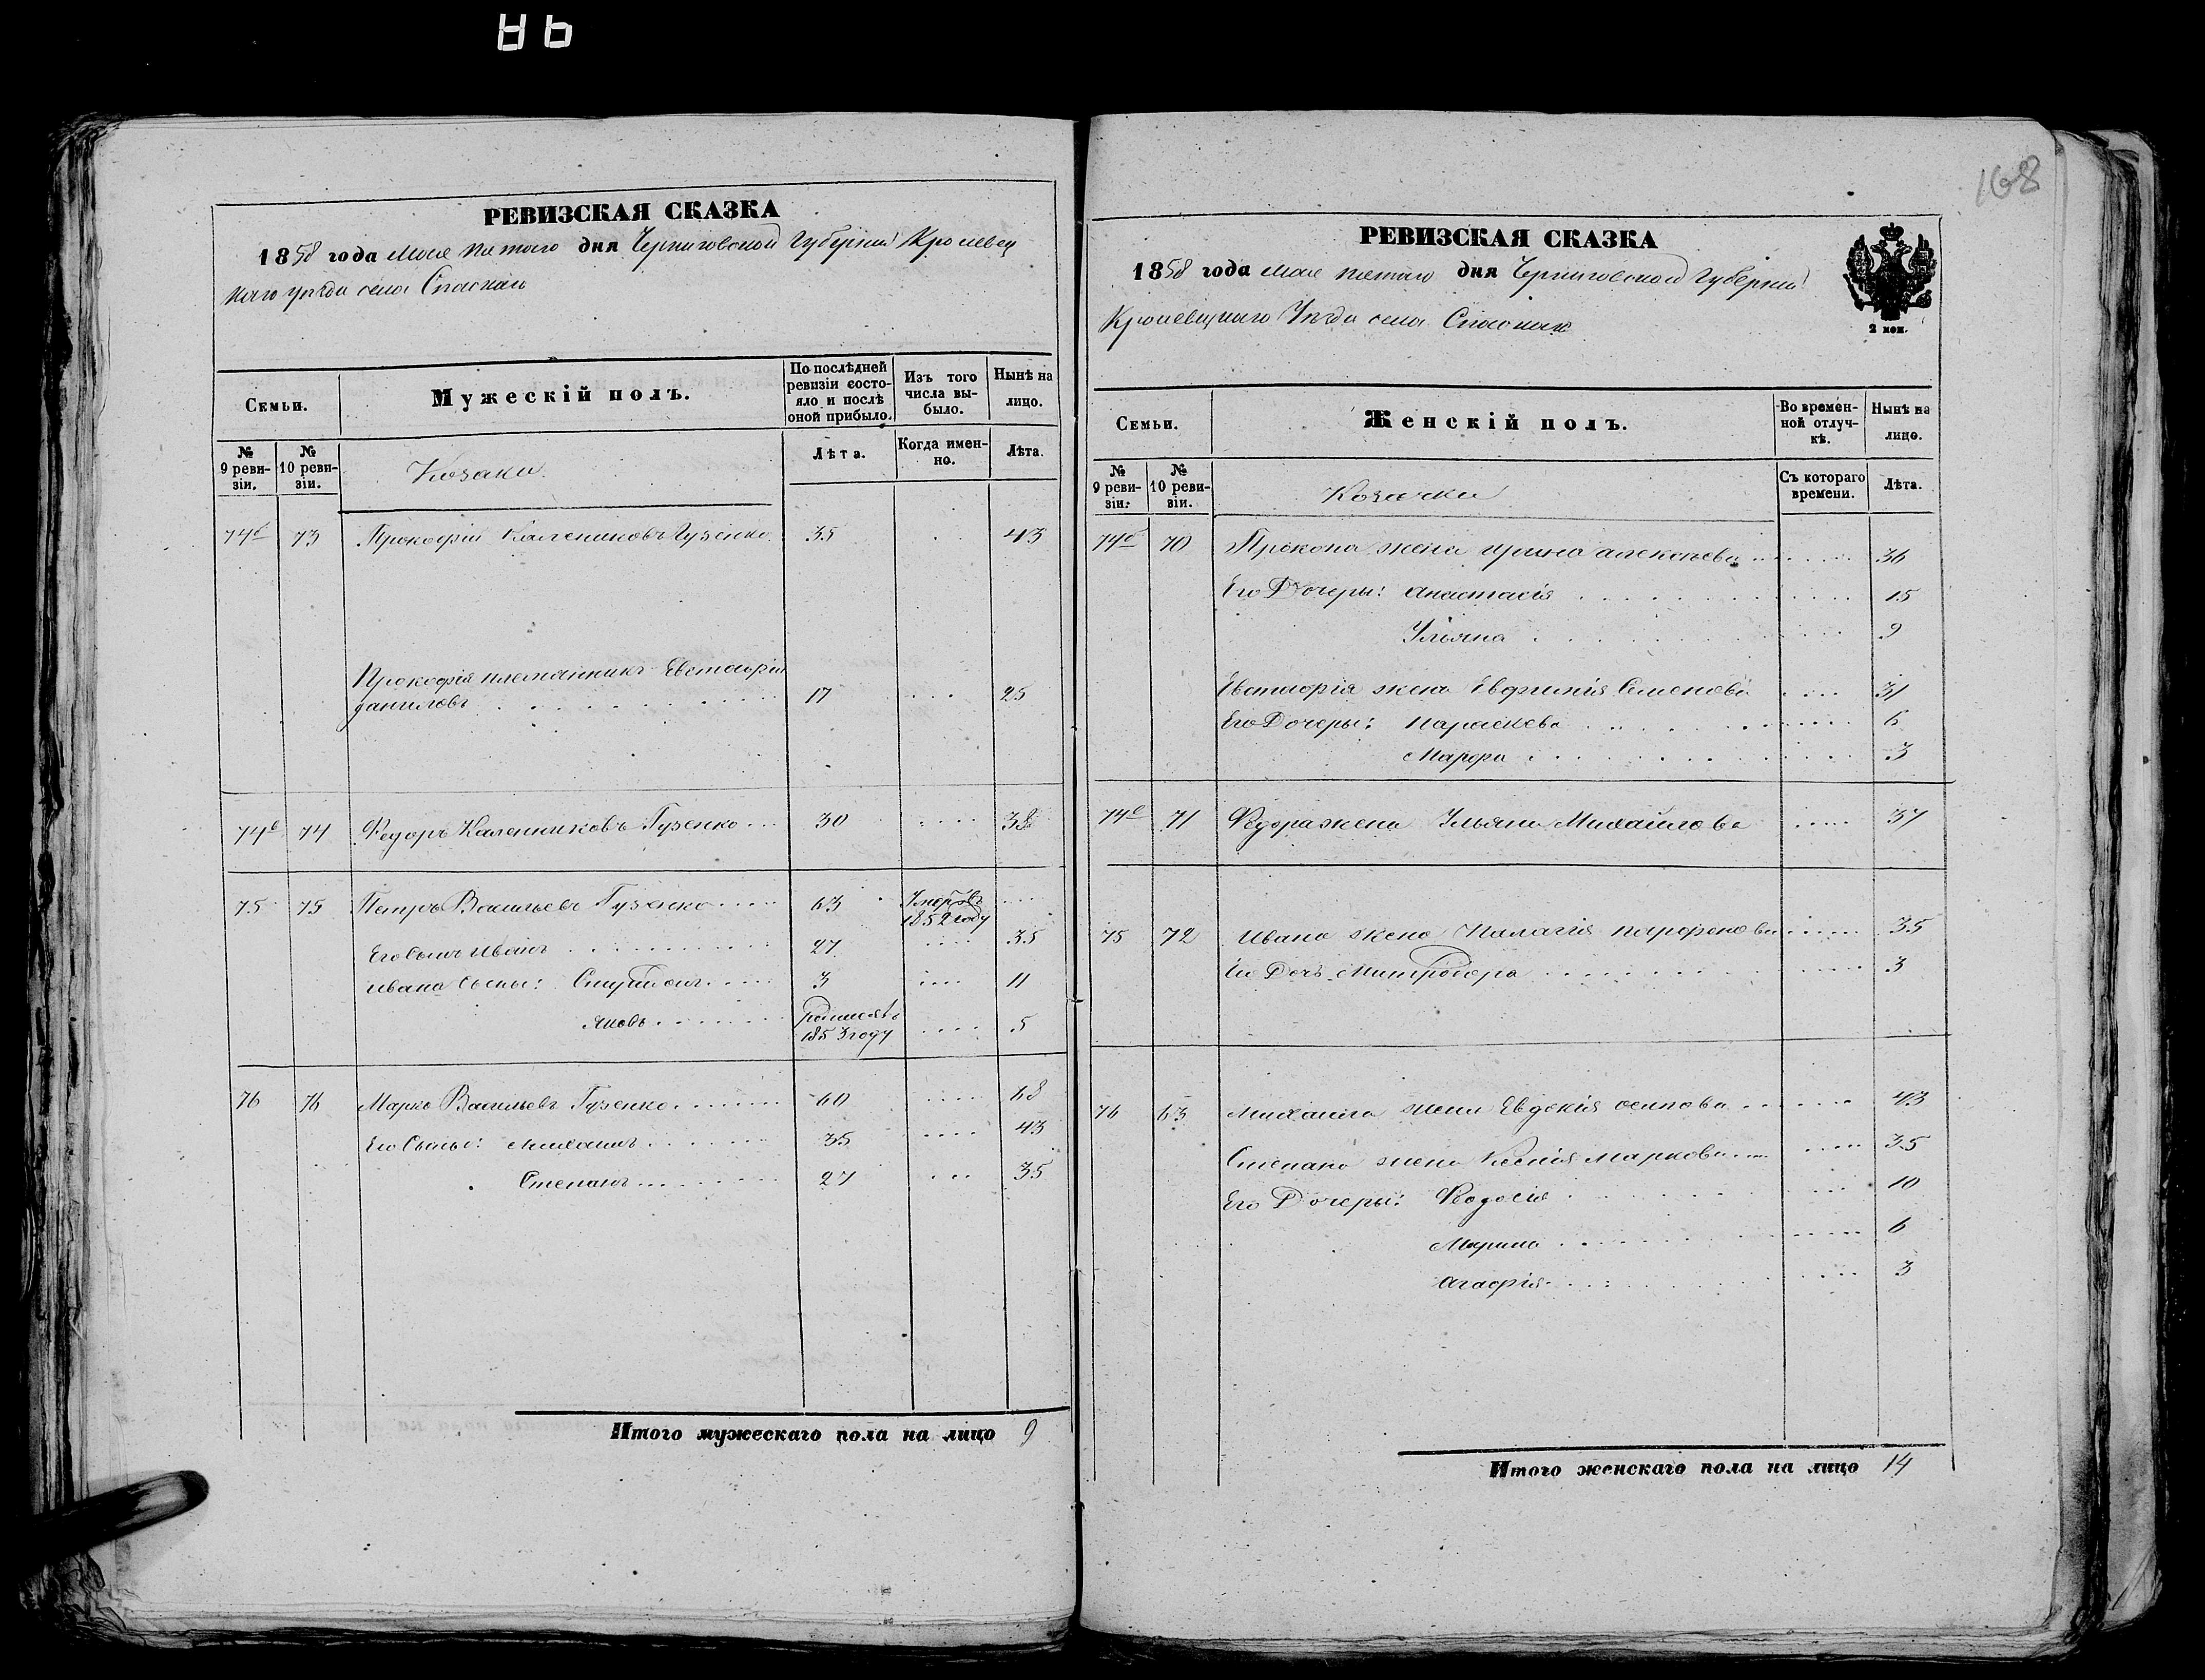 168
РЕВИЗСКАЯ СКАЗКА
1858 года мая пятаго дня Черниговской Губерніи Кролевец
каго уѣзда села Спаскаго
Семьи.
Мужескій полъ.
По послѣдней ревизіи состояло и послѣ оной прибыло.
Изъ того числа выбыло.
Нынѣ на лицо.
№ 9 ревизіи.
№ 10 ревизіи.
Козаки
Лѣта.
Когда именно.
Лѣта.
74 73 Прокофій Калениковъ Гузенко 35 43
Прокофія племянникъ Евстафій
Даниловъ 17 25
74 74 Федоръ Каленниковъ Гузенко 30 38
75 75 Петръ Васильевъ Гузенко 63 Умеръ въ 1852 году
Его сынъ Иванъ 27 35
Ивана сыны: 3 11
Яковъ 1853 году 5
76 76 Марко Васильевъ Гузенко 60 68
Его Сыны: Михаилъ 35 43
Степанъ 27 35
Итого мужескаго пола на лицо 9
РЕВИЗСКАЯ СКАЗКА
1858 года мая пятаго дня Черниговской Губерніи
Кролевецкаго Уѣзда села Спаскаго
2 коп.
Семьи.
Женскій полъ.
Во временной отлучкѣ.
Нынѣ на лицо.
№ 9 ревизіи.
№ 10 ревизіи.
Козачки
Съ котораго времени.
Лѣта.
74 70 Прокопа жена Ирина Алексѣева 36
Его Дочеры: Анастасія 15
Ульяна 9
Евстафія жена Евфимія Семенова 31
Его Дочеры: Параскева 6
Марфа 3
74 71 Федора жена Ульяна Михайлова 37
75 72 Ивана жена Палагія Парфенова 35
Его Дочь Митродора 3
76 63 Михаила жена Евдокія Осипова 43
Степана жена Ксенія Маркова 35
Его Дочеры: Феодосія 10
Марина 6
Агафія 3
Итого женскаго пола на лицо 14